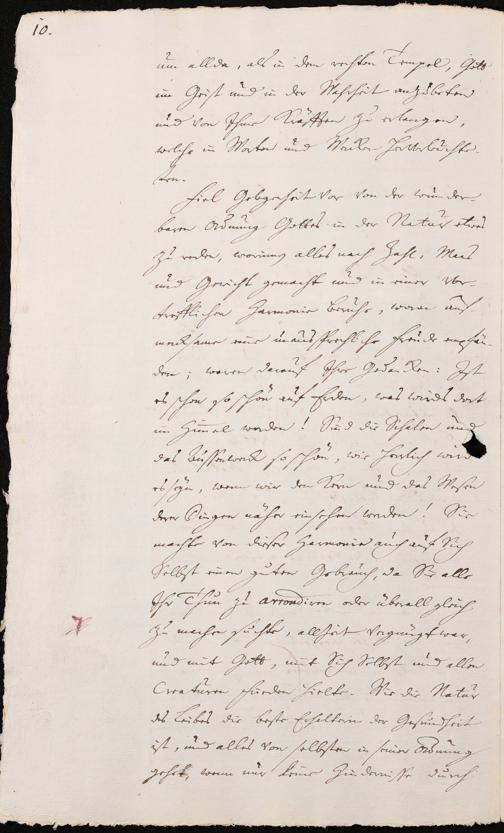 10.
um allda, als in dem rechten Tempel, Gott
im Geist und in der Wahrheit anzubeten
und von Ihme Kräfften zu erlangen,
welche in Worten und Wercken hervorleuchte-
ten.
Fiel Gelegenheit vor von der wunder-
baren Ordnung Gottes in der Natur etwas
zu reden, worinn alles nach Zahl, Maas
und Gewicht gemacht und in einer vor-
trefflichen Harmonie beruhe, woran auf-
merksame eine unaussprechliche Freude empfin-
den; waren darauf Ihre Gedancken: Ist
es schon so schön auf Erden, was wird's dort
im Himmel werden! Sind die Schalen und
das Aussenwerck so schön, wie herrlich wird
es seyn, wenn wir den Kern und das Wesen
derer Dingen näher einsehen werden! Sie
machte von dieser Harmonie auch auf Sich
Selbst einen guten Gebrauch, da Sie alle
Ihr Thun zu arrondiren oder überall gleich
zu machen suchte, allzeit vergnügt war,
und mit Gott, mit Sich Selbst und allen
Creaturen Frieden hielte. Wie die Natur
des Leibes die beste Erhalterin der Gesundheit
ist, und alles von selbsten in seiner Ordnung
gehet, wenn nur keine Hindernisse durch